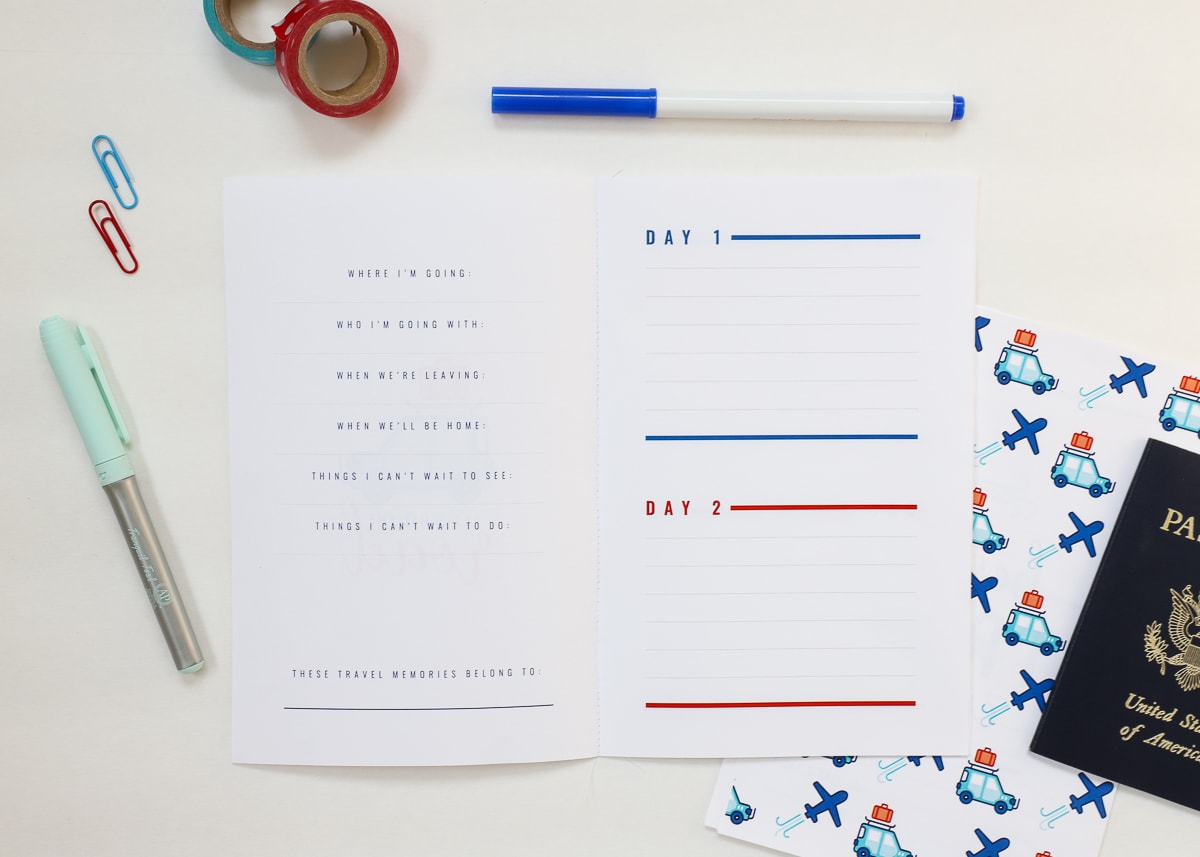 WHERE I'M GOING:
WHO I'M GOING WITH:
WHEN WE'RE LEAVING:
WHEN WE'LL BE HOME:
THINGS I CAN'T WAIT TO SEE:
THINGS I CAN'T WAIT TO DO:
THESE TRAVEL MEMORIES BELONG TO:
DAY 1
DAY 2
PAS
United Sta
of America